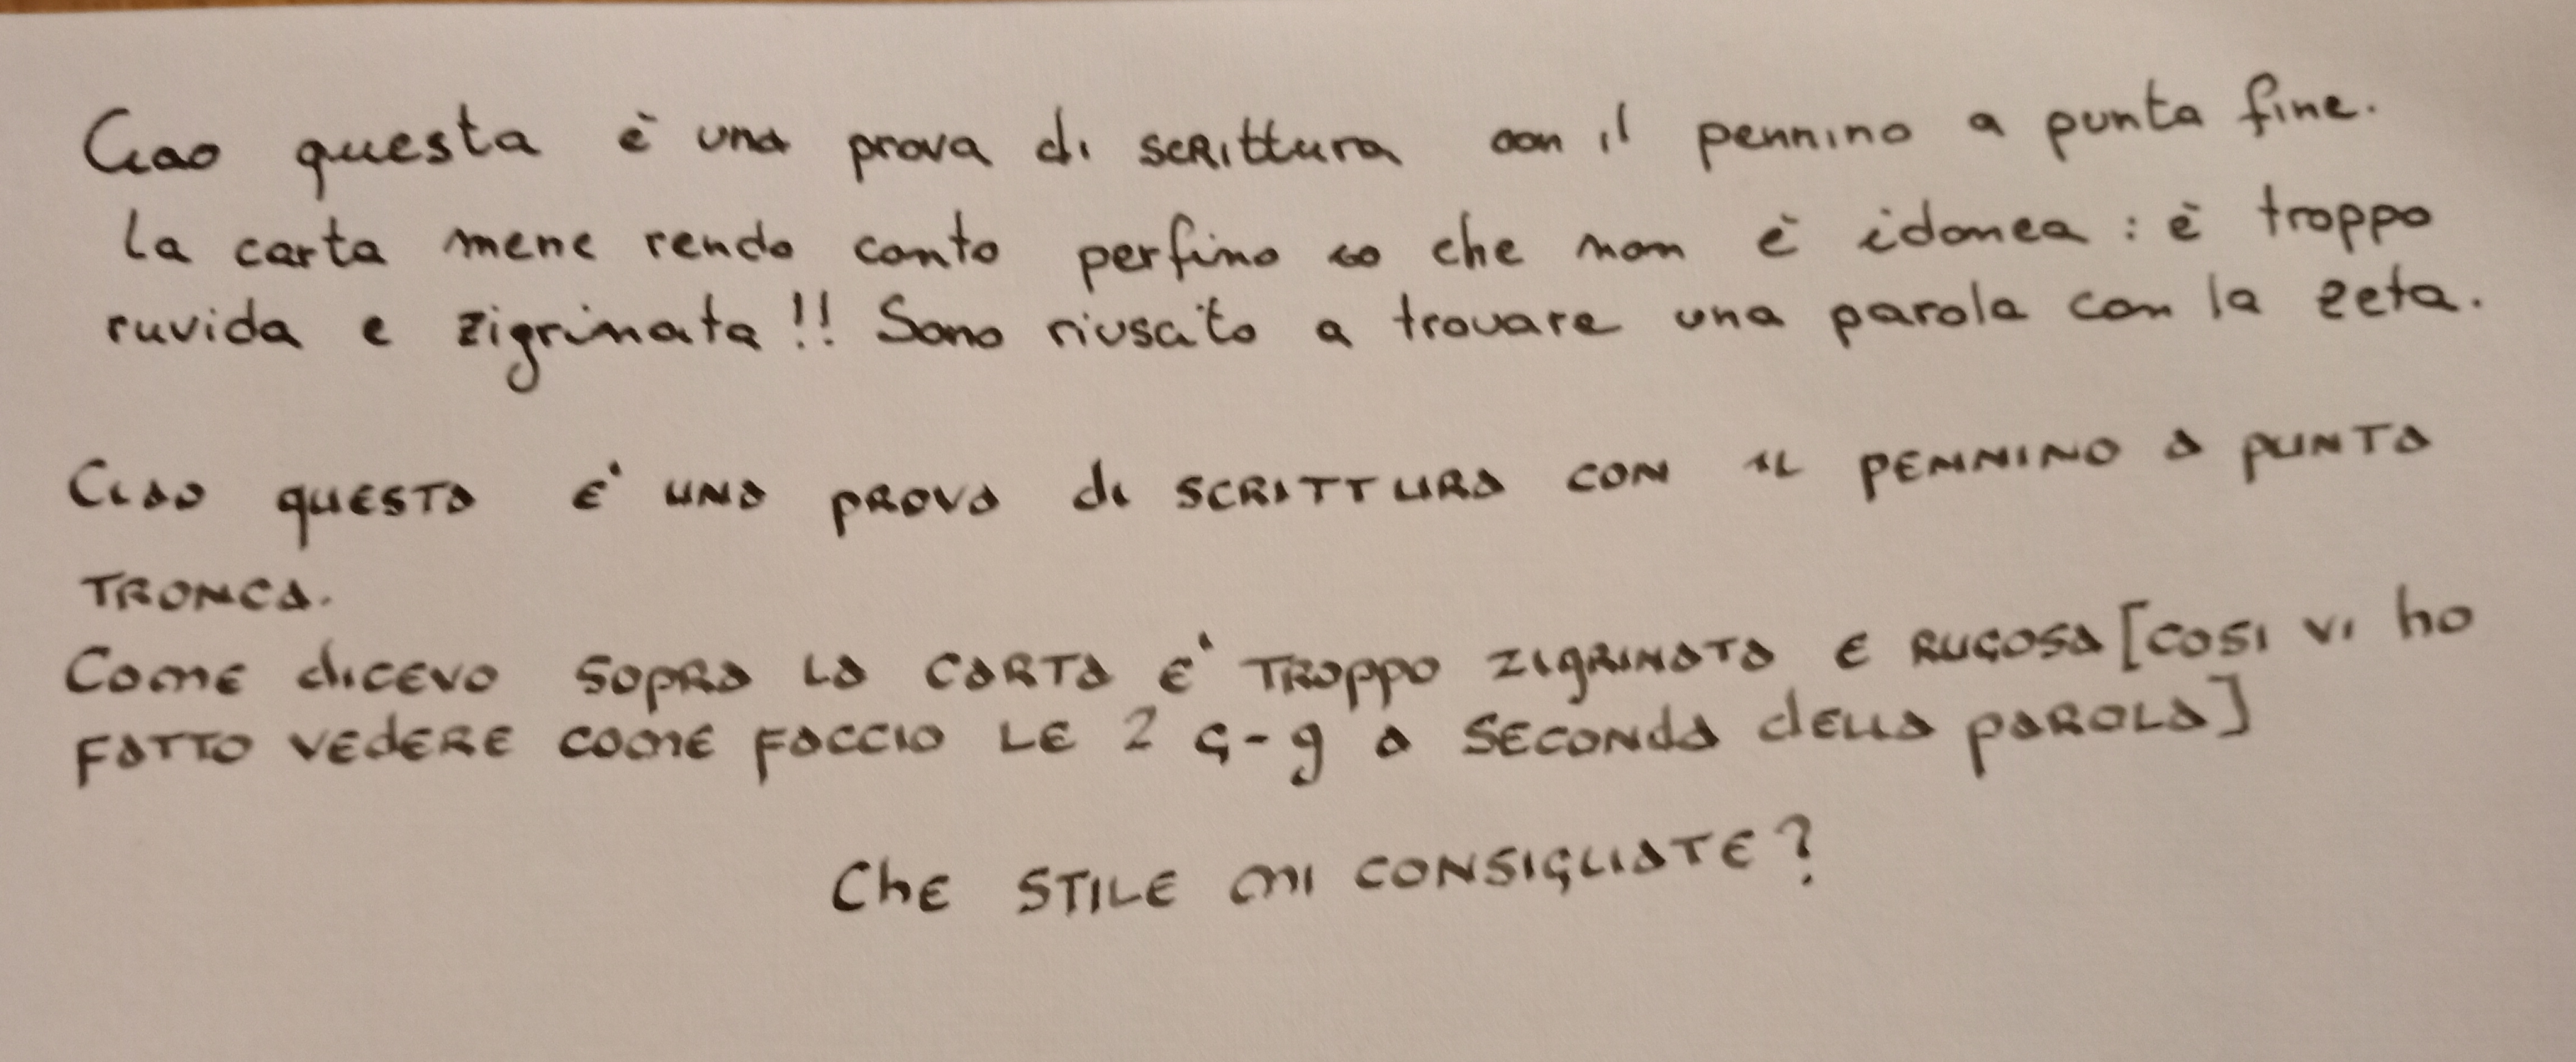 Ciao questa è una prova di scrittura con il pennino a punta fine.
la carta mene rendo conto perfino io che non è idonea : è troppo
ruvida e zigrinata!! Sono riuscito a trovare una parola con la zeta.
Ciao questa E' una prova di SCRITTURA CON IL PENNINO A PUNTA
TRONCA.
COME dicEVO SOPRA LA CARTA E' TROPPO ZIGRINATA E RUGOSA [COSI VI ho
FATTO VEdERE COME FACCIO LE 2 G-g A SECONdA dELLA PAROLA]
ChE STILE MI CONSIGLIATE?